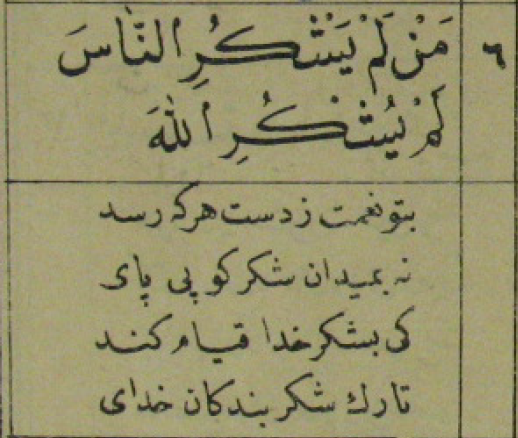 ٦
مَنْ لَمْ يَشْكُرِ النَّاسَ
لَمْ يَشْكُرِ اللهَ
بتو نعمت ز دست هر که رسد
نه بمیدان شکر کو پی پای
کی بشکر خدا قیام کند
تارك شکر بندکان خدای